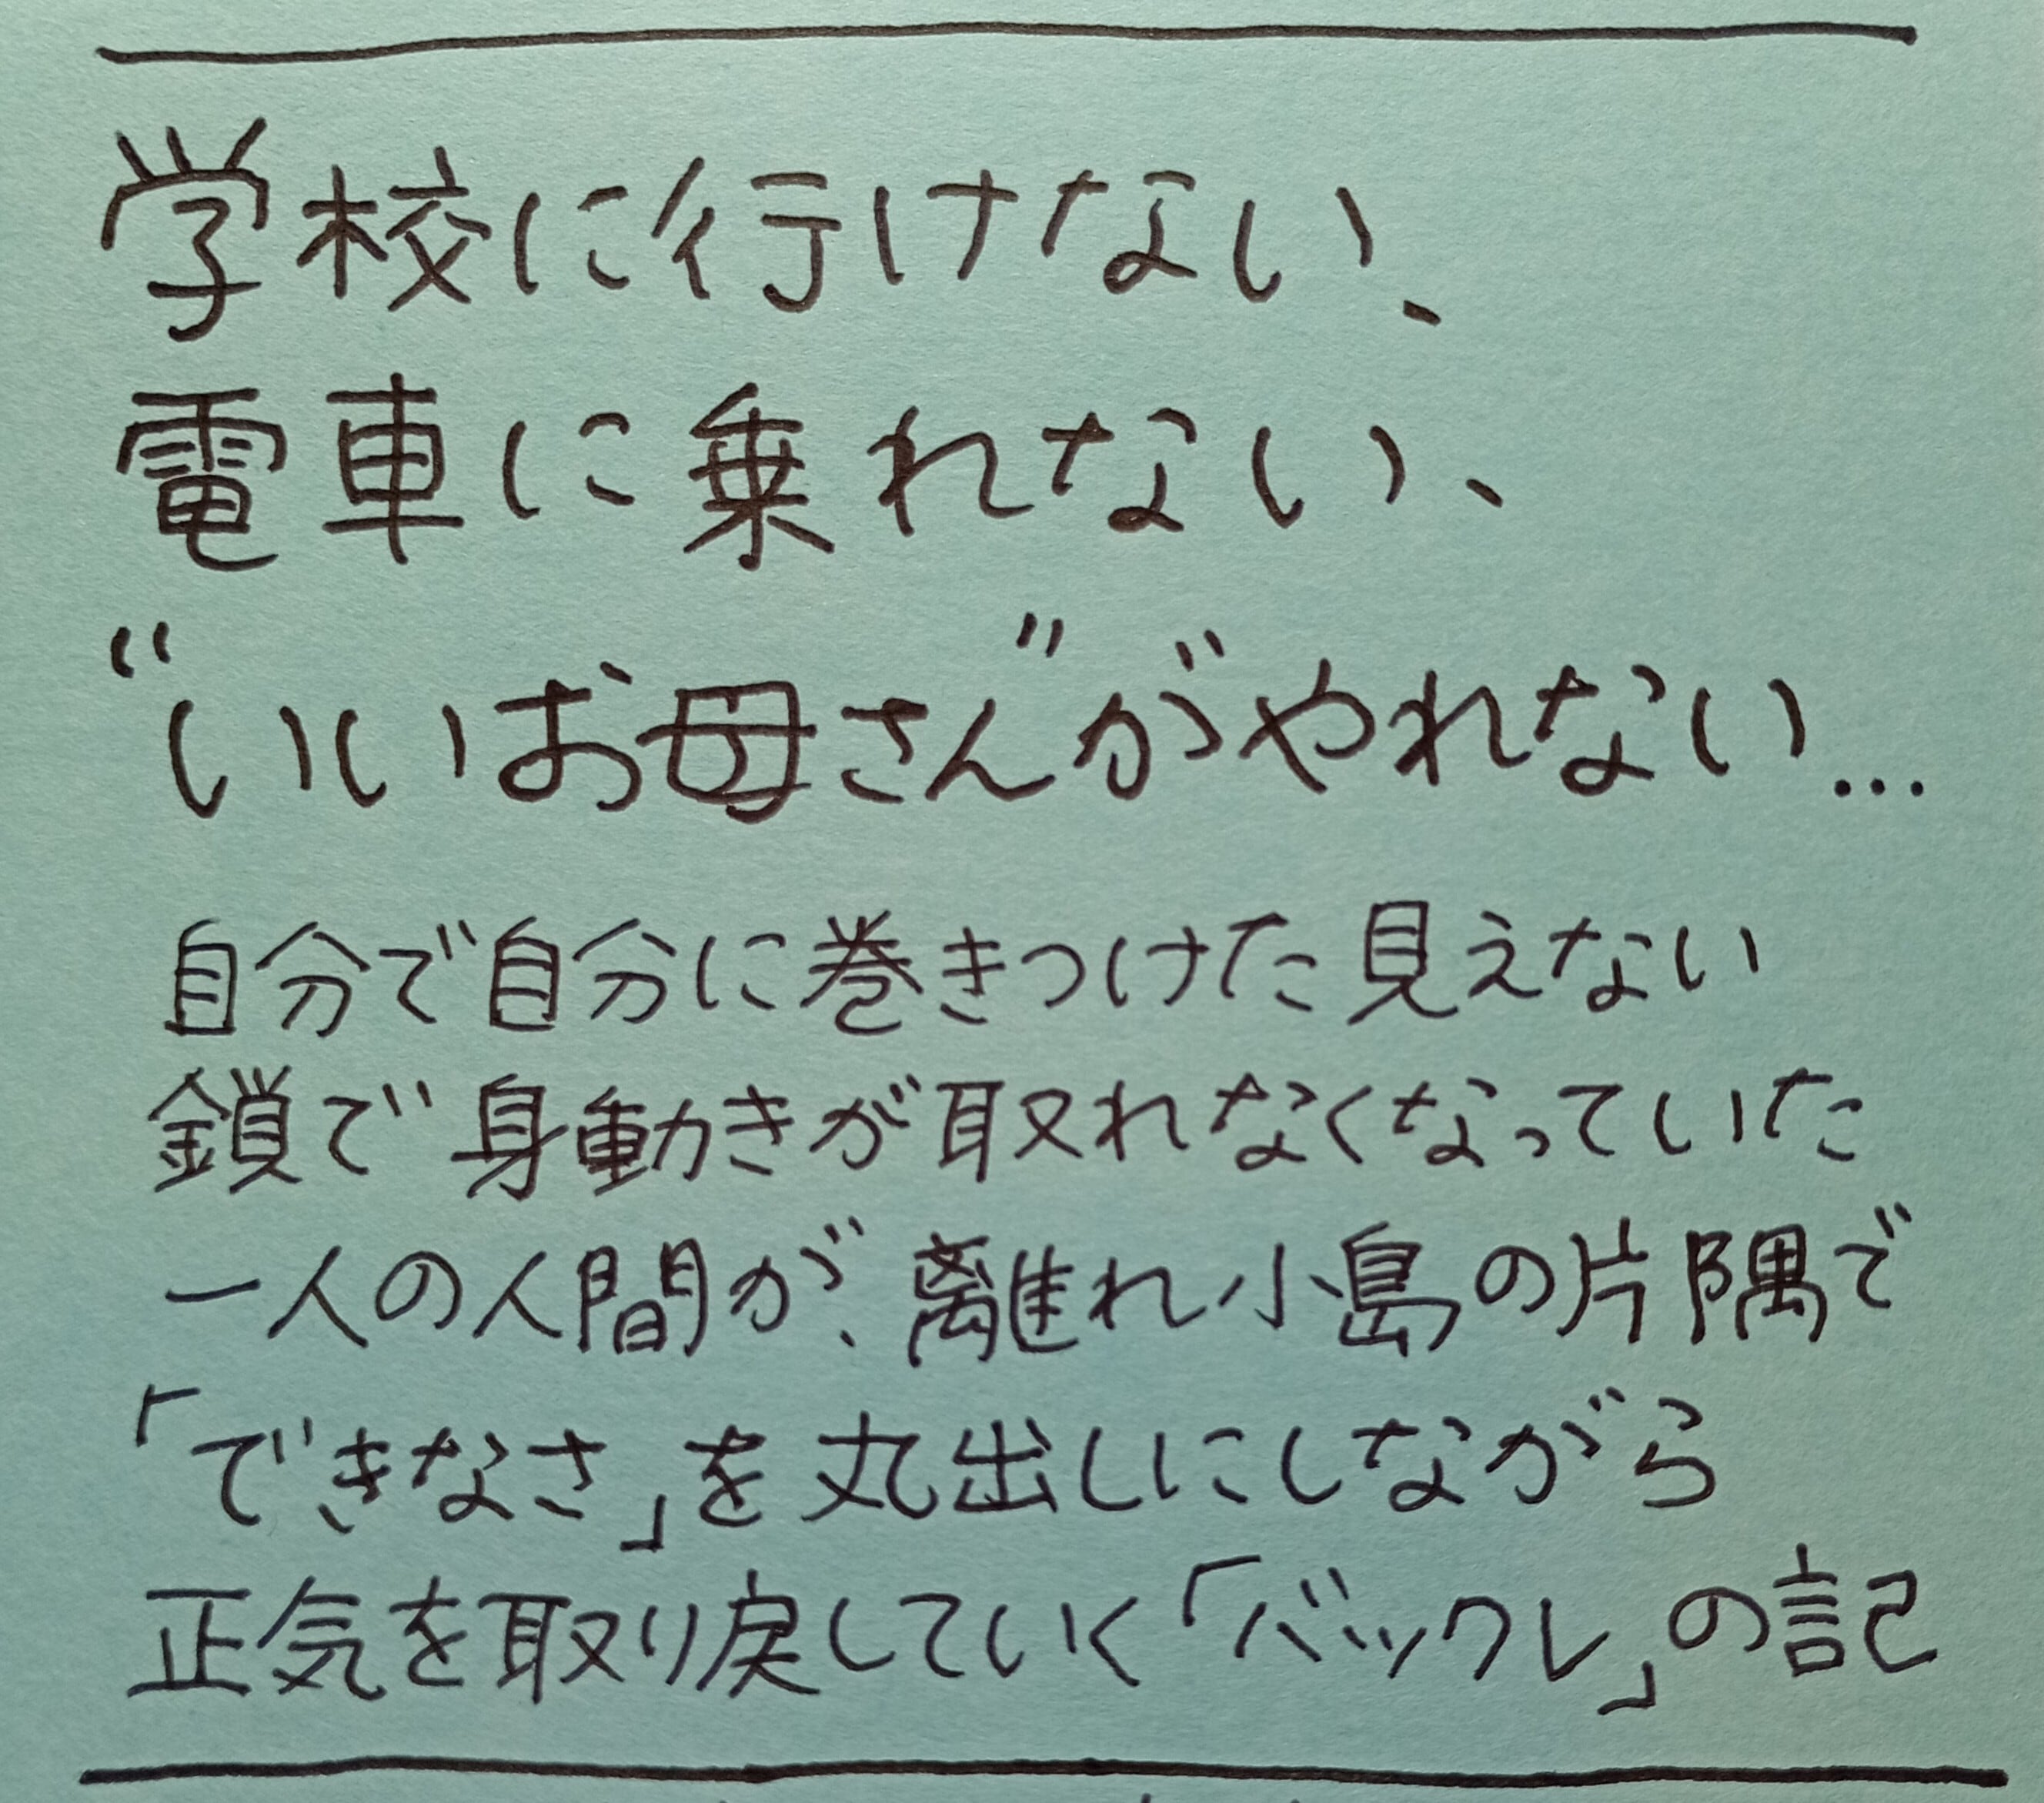 学校に行けない、
電車に乗れない、
“いいお母さん”がやれない…
自分で自分に巻きつけた見えない
鎖で身動きが取れなくなっていた
一人の人間が、離れ小島の片隅で
「できなさ」を丸出しにしながら
正気を取り戻していく「バックレ」の記